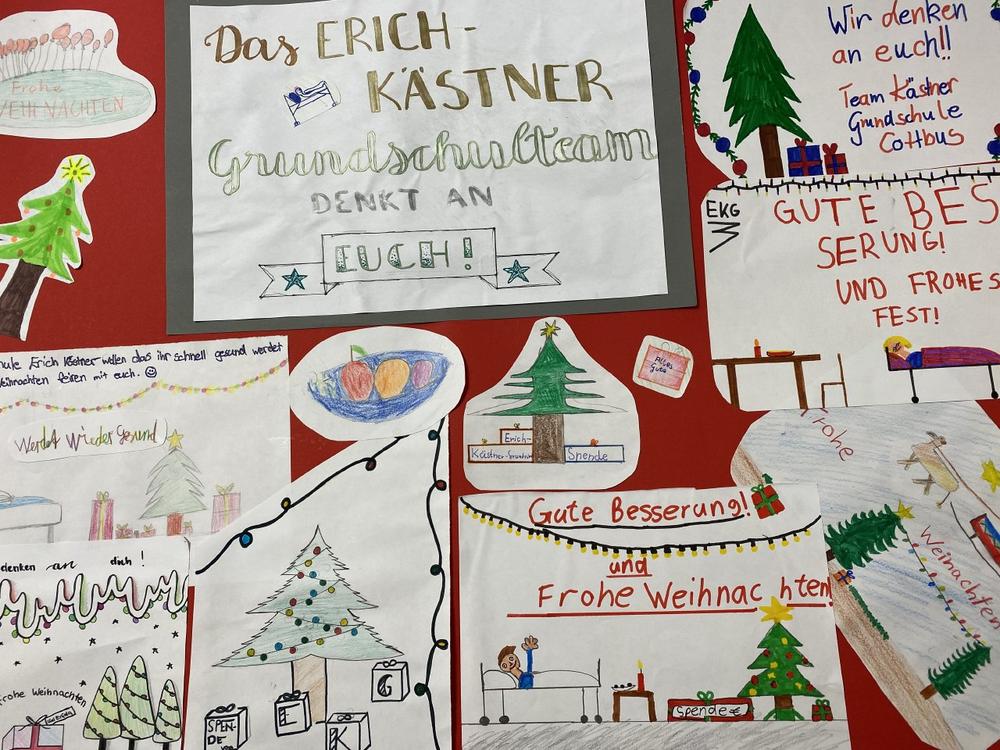 Frohe
WEIHNACHTEN
Das ERICH-
KÄSTNER
Grundschulteam
DENKT AN
EUCH!
Wir denken
an euch!!
Team Kästner
Grundschule
Cottbus
EKG
GUTE BES
SERUNG!
UND FROHES
FEST!
Erich Kästner wollen das ihr schnell gesund werdet
Weihnachten feiren mit euch.
Werdet Wieder Gesund
Alles
Gute
Erich-
Kästner-
Spende
Gute Besserung!
und
Frohe Weihnachten!
Spende €
Frohe
Weinachten
denken an dich!
Frohe Weihnachten
SPEN-
DE
E
K
G